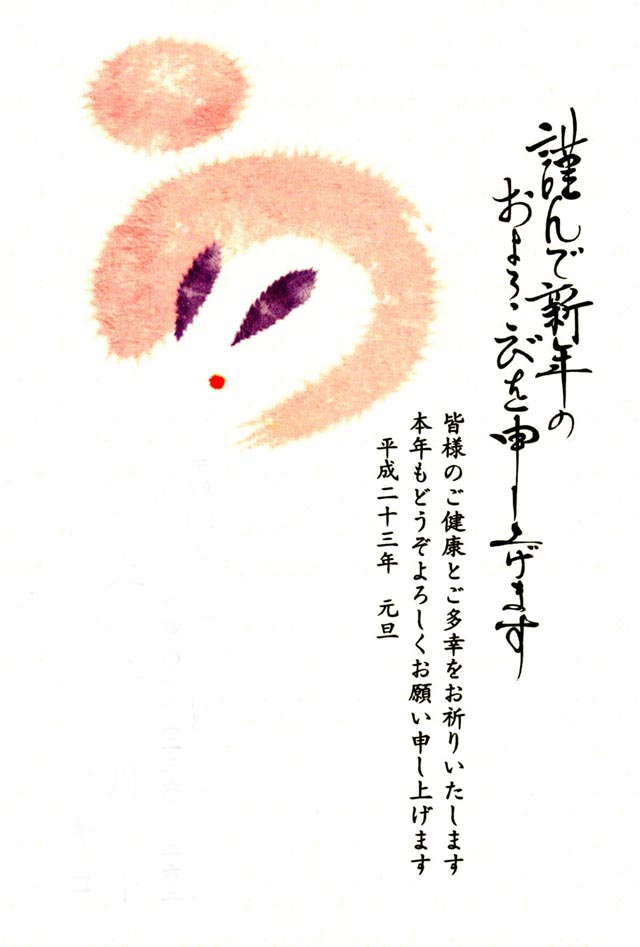 謹んで新年の
およろこびを申し上げます
皆様のご健康とご多幸をお祈りいたします
本年もどうぞよろしくお願い申し上げます
平成二十三年　元旦